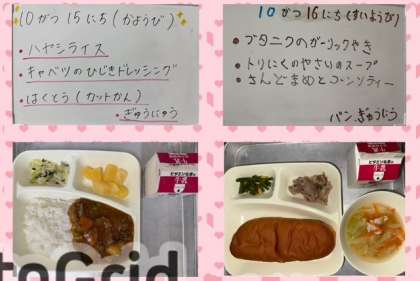 10がつ15にち(かようび)
・ハヤシライス
・キャベツのひじきドレッシング
・はくとう(カットかん)
・ぎゅうにゅう
10がつ16にち(すいようび)
・ブタニクのガーリックやき
・トリにくのやさいのスープ
・さんどまめとコーンソティー
パンぎゅうにう
toGrid